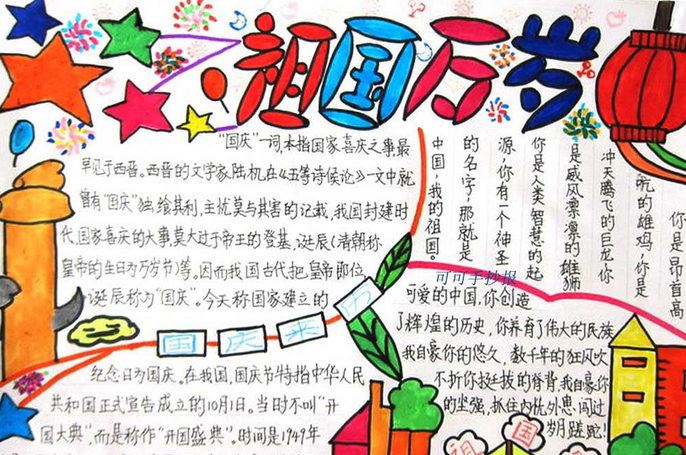 祖国万岁
"国庆"一词,本指国家喜庆之事最
早见于西晋。西晋的文学家陆机在《五等诗侯论》一文中就
曾有"国庆"独其利,主忧莫与其害的记载,我国封建时
代、国家喜庆的大事莫大过于帝王的登基、诞辰(清朝称
皇帝的生日为万岁节)等。因而我国古代把皇帝即位
诞辰称为"国庆"。今天称国家建立的
国庆来历
纪念日为国庆。在我国,国庆节特指中华人民
共和国正式宣告成立的10月1日。当时不叫"开
国大典",而是称作"开国盛典"。时间是1949年
你是昂首高
航的雄鸡,你是
冲天腾飞的巨龙你
是威风凛凛的雄狮
你是人类智慧的起
源,你有一个神圣
的名字,那就是
中国,我的祖国。
可可手抄报
可爱的中国,你创造
了辉煌的历史,你养育了伟大的民族
我自豪你的悠久,数千年的狂风吹
不折你挺拔的脊背,我自豪你
的坐强,抓住内忧外患,闯过
岁月蹉跎!
祖国